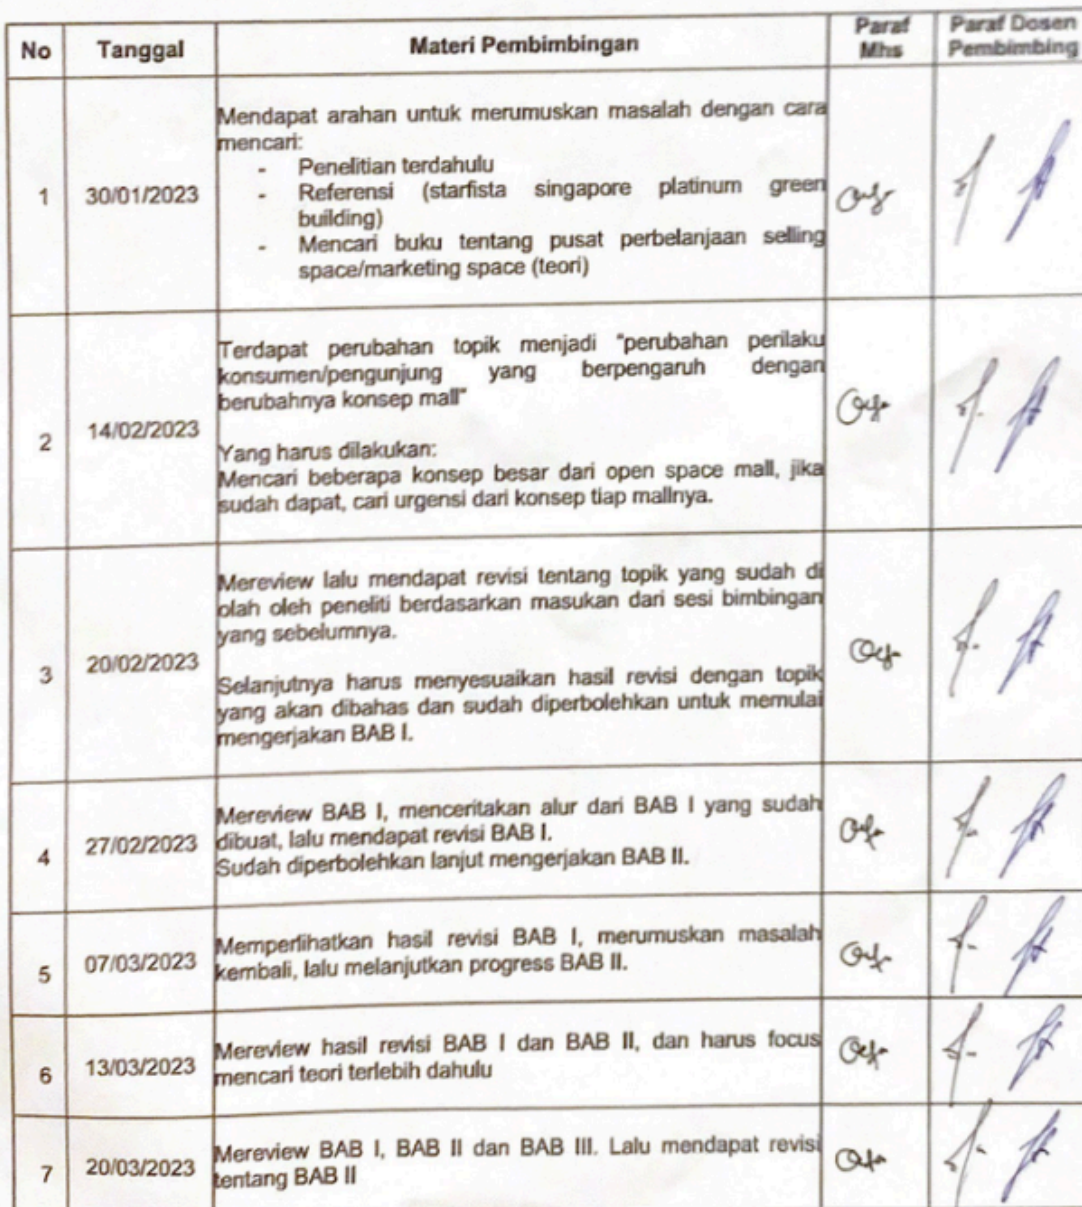 No Tanggal Materi Pembimbingan Paraf Mhs Paraf Dosen Pembimbing
Mendapat arahan untuk merumuskan masalah dengan cara
mencari:
- Penelitian terdahulu
1 30/01/2023 - Referensi (starfista singapore platinum green
building)
- Mencari buku tentang pusat perbelanjaan selling
space/marketing space (teori)
Terdapat perubahan topik menjadi "perubahan perilaku
konsumen/pengunjung yang berpengaruh dengan
berubahnya konsep mall"
2 14/02/2023
Yang harus dilakukan:
Mencari beberapa konsep besar dari open space mall, jika
sudah dapat, cari urgensi dari konsep tiap mallnya.
Mereview lalu mendapat revisi tentang topik yang sudah di
olah oleh peneliti berdasarkan masukan dari sesi bimbingan
yang sebelumnya.
3 20/02/2023
Selanjutnya harus menyesuaikan hasil revisi dengan topik
yang akan dibahas dan sudah diperbolehkan untuk memulai
mengerjakan BAB I.
Mereview BAB I, menceritakan alur dari BAB I yang sudah
4 27/02/2023 dibuat, lalu mendapat revisi BAB I.
Sudah diperbolehkan lanjut mengerjakan BAB II.
Memperlihatkan hasil revisi BAB I, merumuskan masalah
5 07/03/2023 kembali, lalu melanjutkan progress BAB II.
Mereview hasil revisi BAB I dan BAB II, dan harus focus
6 13/03/2023 mencari teori terlebih dahulu
Mereview BAB I, BAB II dan BAB III. Lalu mendapat revisi
7 20/03/2023 tentang BAB II